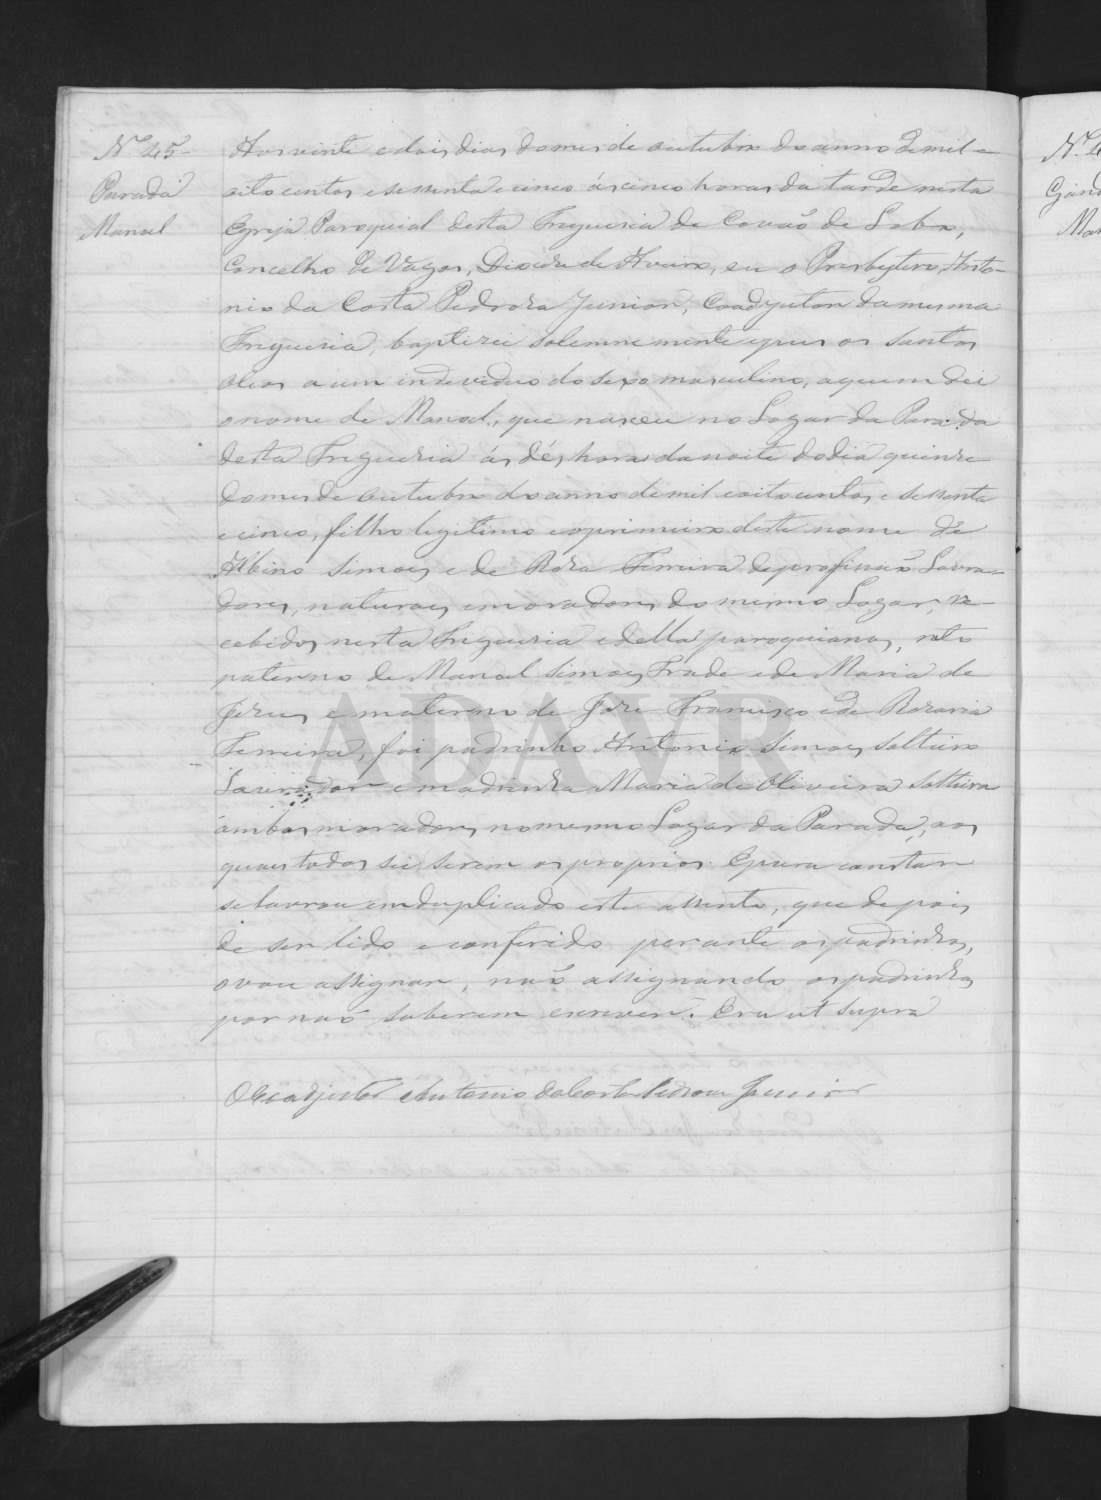 Nº 45
Parada
Manoel
Aos vinte e dois dias do mes de outubro do anno de mil e
oito centos e sessenta e cinco ás cinco horas da tarde nesta
Egreja Paroquial desta Freguesia de Covaõ de Lobo,
Concelho de Vagos, Diocese de Aveiro, eu o Presbytero Anto-
nio da Costa Pedroza Junior, Coadjutor da mesma
Freguesia, baptizei solemnemente e pus os santos
oleos a um individuo do sexo masculino, a quem dei
o nome de Manoel, que nasceu no Logar da Parada
desta Freguesia ás dés horas da noite do dia quinze
do mes de outubro do anno de mil e oito centos e sessenta
e cinco, filho legitimo e o primeiro deste nome de
Albino Simoes e de Roza Ferreira de profissaõ Lavra-
dores, naturaes e moradores do mesmo Logar, re-
cebidos nesta Freguesia e della paroquianos, neto
paterno de Manoel Simoes Frade e de Maria de
Jezus e materno de Joze Francisco e de Rozaria
Ferreira, foi padrinho Antonio Simoes solteiro
Lavrador e madrinha Maria de Oliveira solteira
ambos moradores no mesmo Logar da Parada, aos
quaes todos sei serem os proprios. E para constar
se lavrou em duplicado este assento, que depois
de ser lido e conferido perante os padrinhos,
o vou assignar, naõ assignando os padrinhos
por naõ saberem escrever. Era ut supra
O Coadjutor Antonio da Costa Pedroza Junior
ADAVR
Nº 4
Gand
Ma